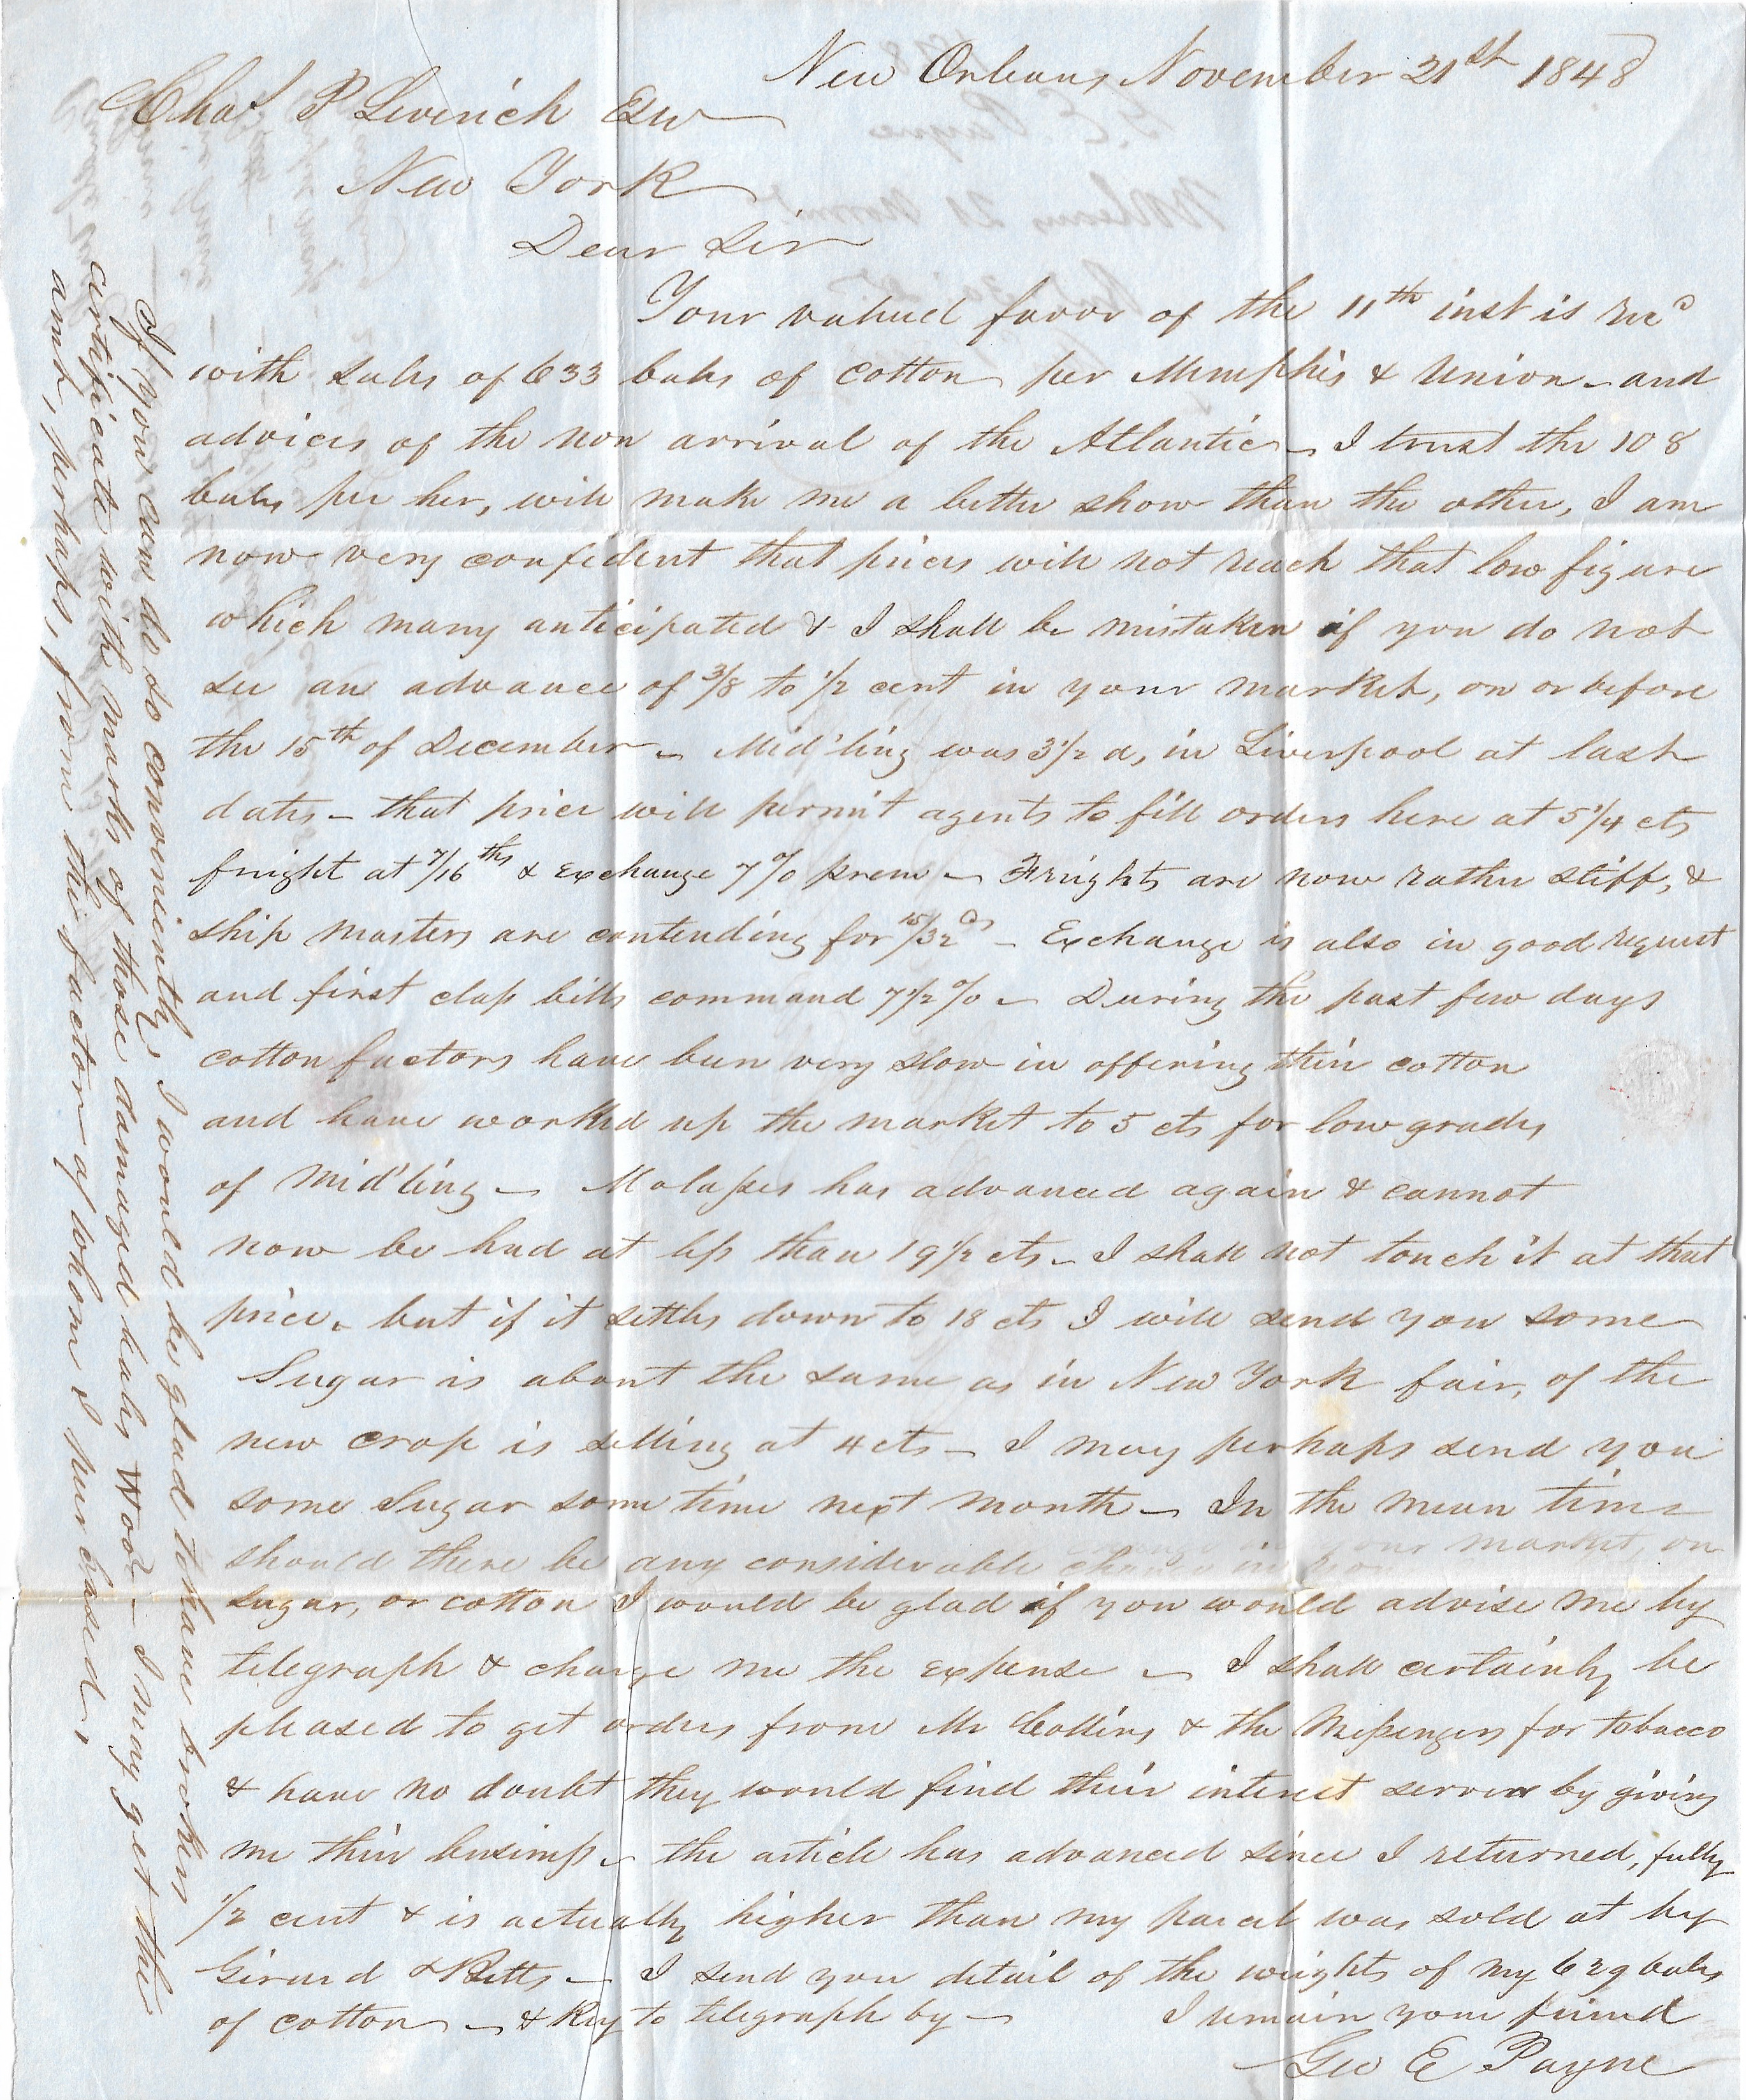 New Orleans November 21st 1848
Chas P Leverich Esqr
New York
Dear Sir
Your valued favor of the 11th inst is recd
with sales of 633 bales of cotton per Memphis & Union - and
advices of the non arrival of the Atlantic - I trust the 108
bales per her, will make me a better show than the other, I am
now very confident that prices will not reach that low figure
which many anticipated & I shall be mistaken if you do not
see an advance of 3/8 to 1/2 cent in your market, on or before
the 15th of December - Mid'ling was 3 1/2 d, in Liverpool at last
dates - that price will permit agents to fill orders here at 5 1/4 cts
freight at 7/16ths & Exchange 7% prem - Freights are now rather stiff, &
ship masters are contending for 15/32ds - Exchange is also in good request
and first class bills command 7 1/2 % - During the past few days
cotton factors have been very slow in offering their cotton
and have worked up the market to 5 cts for low grades
of mid'ling - Molasses has advanced again & cannot
now be had at less than 19 1/2 cts - I shall not touch it at that
price - but if it settles down to 18 cts I will send you some
Sugar is about the same as in New York fair, of the
new crop is selling at 4 cts - I may perhaps send you
some Sugar some time next month - In the mean time
should there be any considerable change in your market, on
sugar, or cotton I would be glad if you would advise me by
telegraph & charge me the expense - I shall certainly be
pleased to get orders from Mr Collins & the Messengers for tobacco
& have no doubt they would find their interest served by giving
me their business - the article has advanced since I returned, fully
1/2 cent & is actually higher than my parcel was sold at by
Girard & Betts - I send you detail of the weights of my 629 bales
of cotton - & Key to telegraph by - I remain your friend
Geo E Payne
If you can do so conveniently I would be glad to have broken
certificate with marks of those damaged bales - I may get the
amt, perhaps, from the factor of whom I purchased,